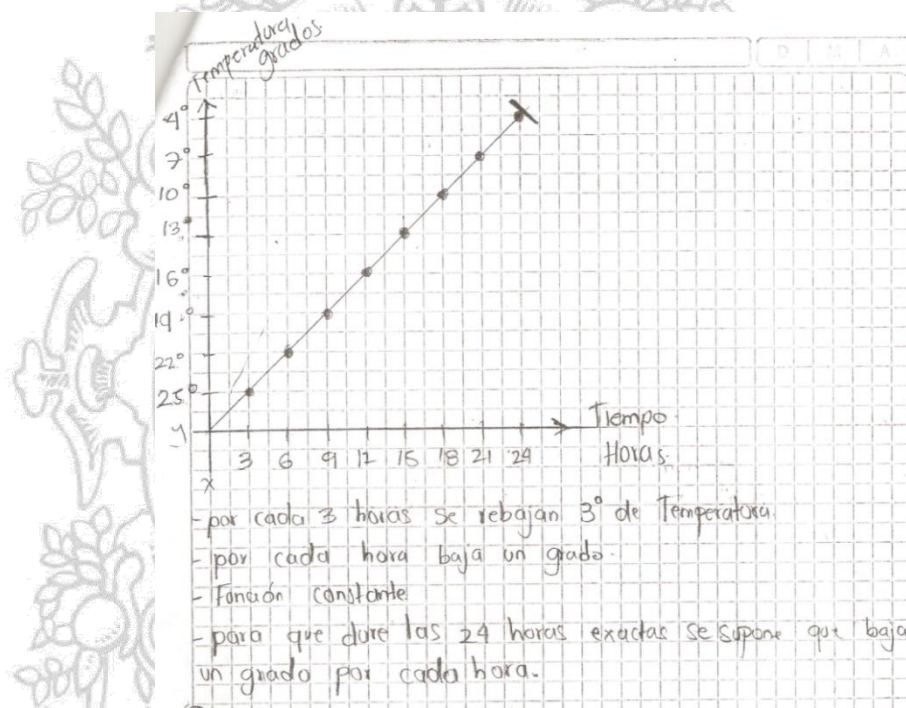 Temperatura
grados
D M A
4°
7°
10°
13°
16°
19°
22°
25°
y
x
3 6 9 12 15 18 21 24
Tiempo
Horas
- por cada 3 horas se rebajan 3° de Temperatura.
- por cada hora baja un grado.
- Función constante
- para que dure las 24 horas exactas se supone que baja
un grado por cada hora.